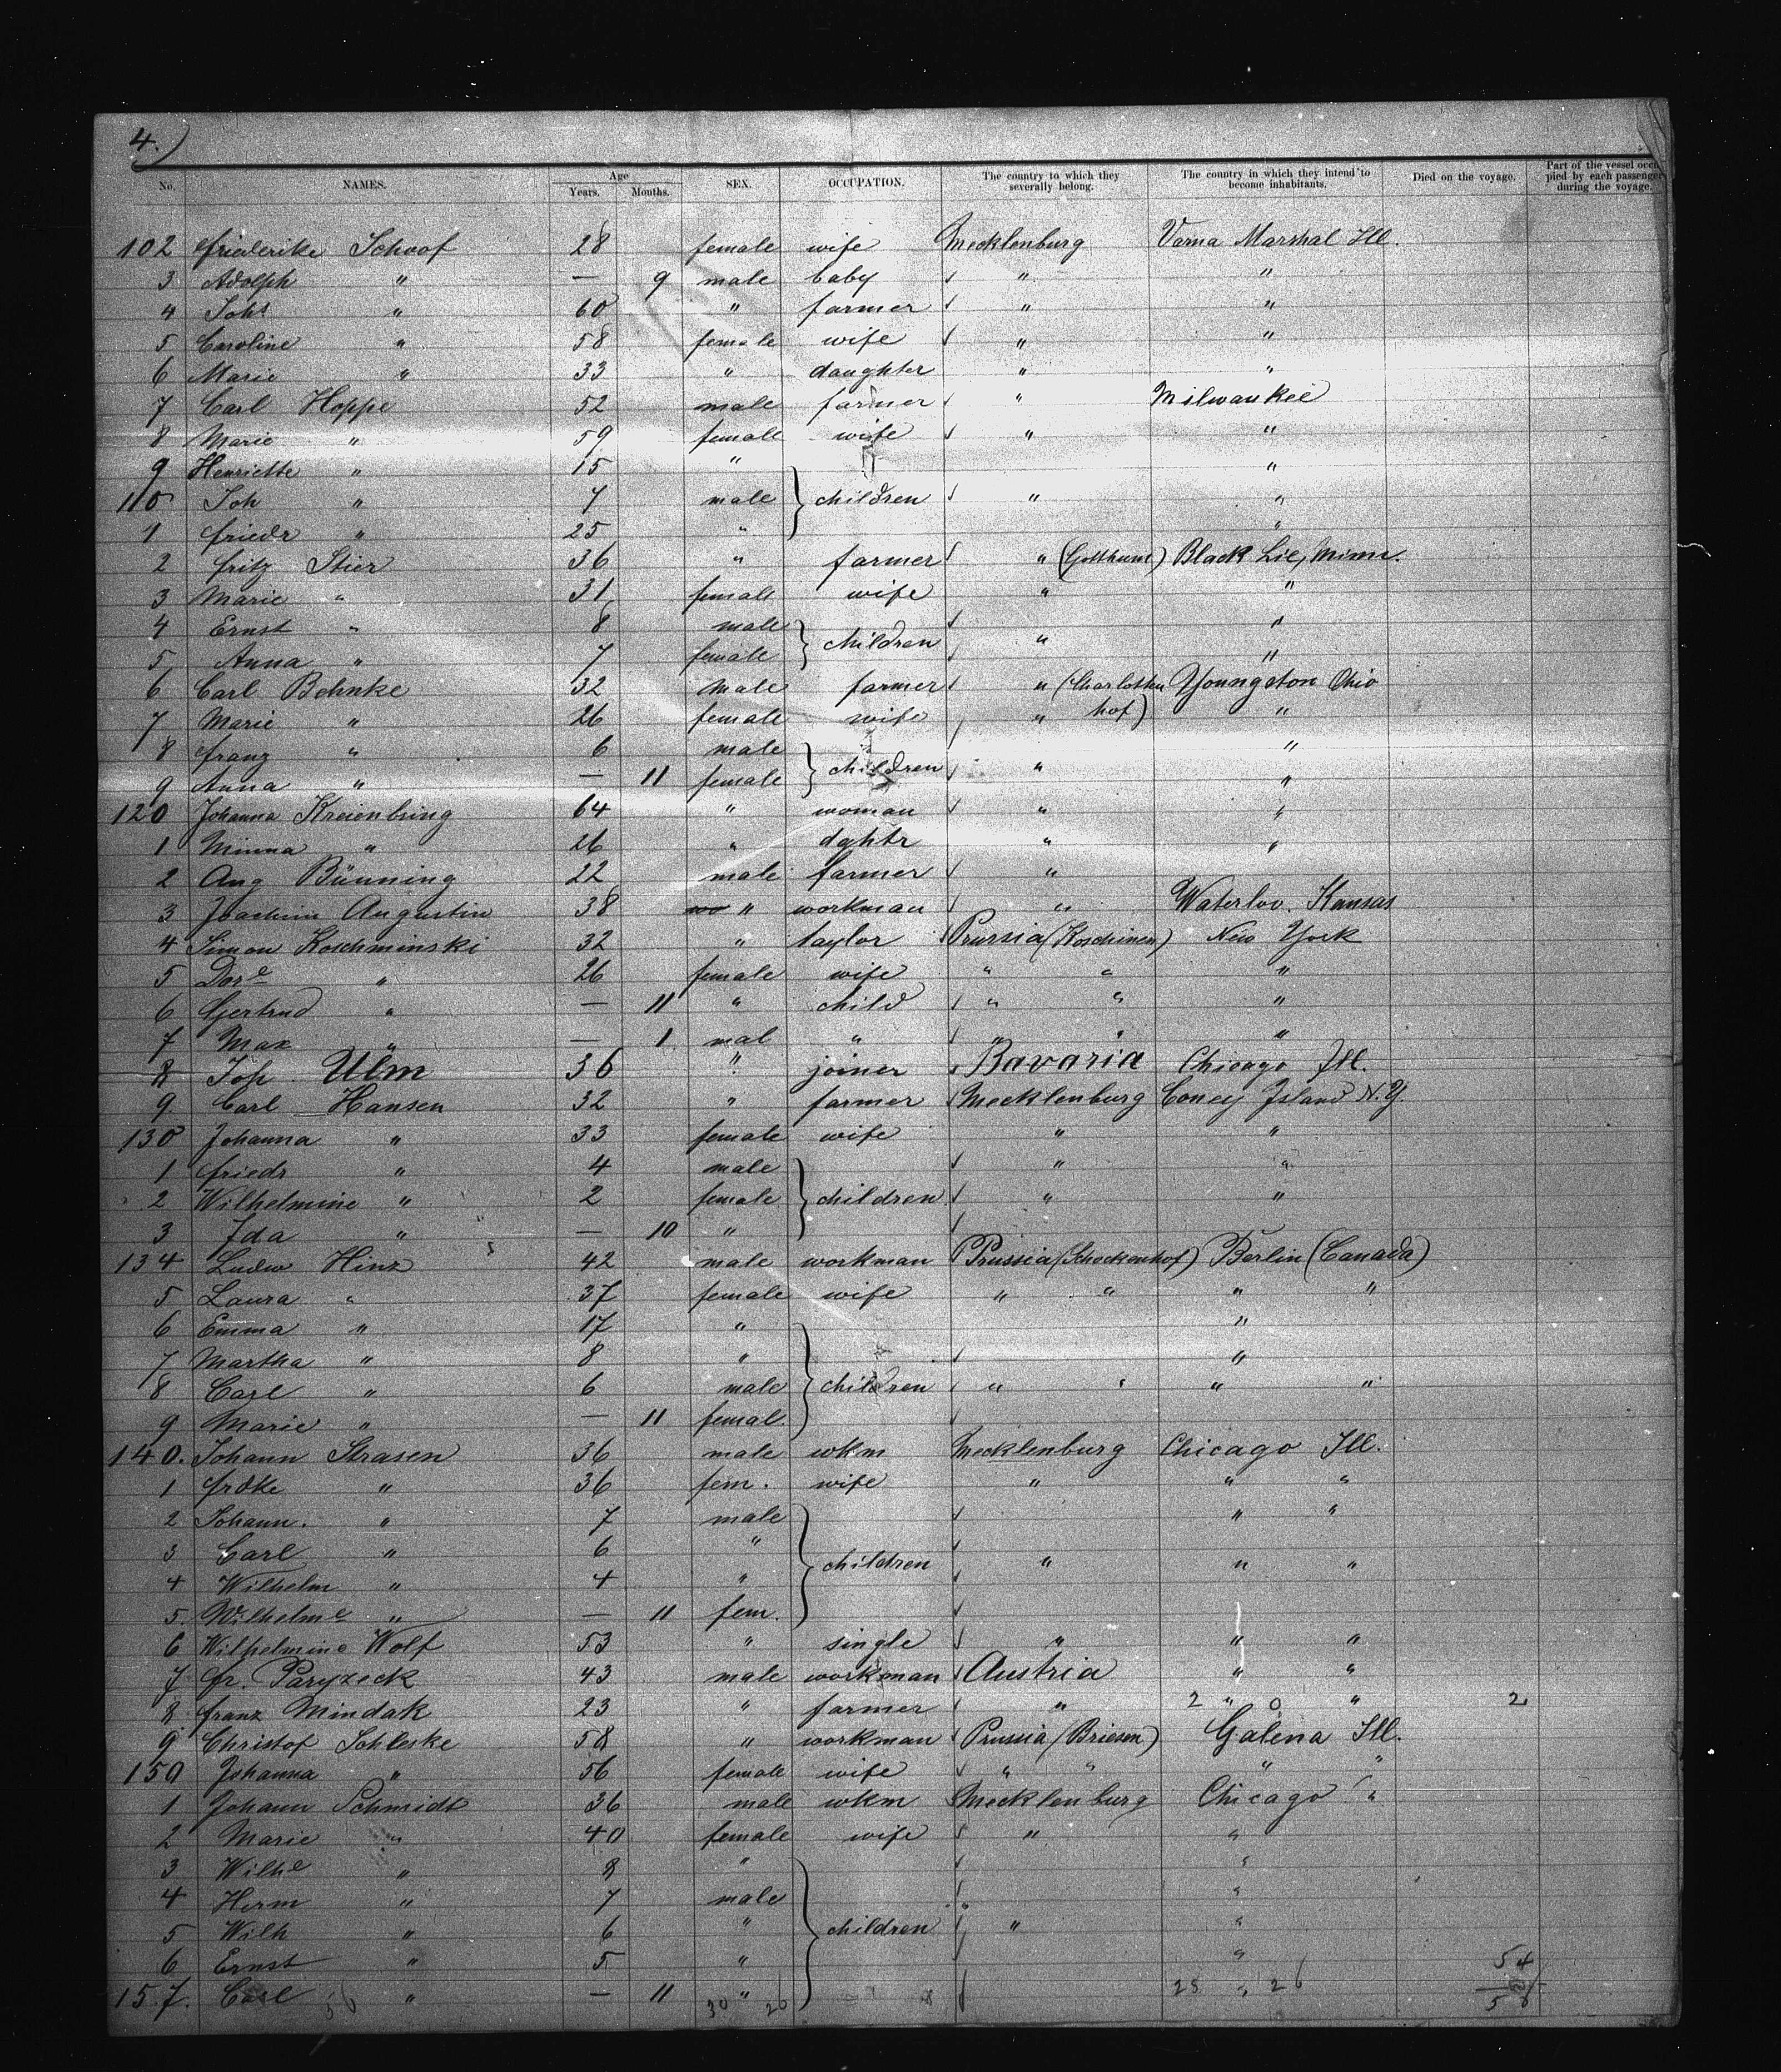 4.)
No. NAMES. Age Years. Months. SEX. OCCUPATION. The country to which they severally belong. The country in which they intend to become inhabitants. Died on the voyage. Part of the vessel occupied by each passenger during the voyage.
102 Friederike Schoof 28 female wife Mecklenburg Varna Marshal Ill.
3 Adolph " — 9 male baby " "
4 Johs " 60 " farmer " "
5 Caroline " 58 female wife " "
6 Marie " 33 " daughter " "
7 Carl Hoppe 52 male farmer " Milwaukee
8 Marie " 59 female wife " "
9 Henriette " 15 " "
110 Joh " 7 male children " "
1 Friedr " 25 " "
2 Fritz Stier 36 " farmer " (Gotthum) Black Lie, Minn.
3 Marie " 31 female wife " "
4 Ernst " 8 male "
5 Anna " 7 female children " "
6 Carl Behnke 32 male farmer " (Charlotten Youngston Ohio
7 Marie " 26 female wife " hof) "
8 Franz " 6 male "
9 Anna " — 11 female children " "
120 Johanna Kreienbring 64 " woman " "
1 Minna " 26 " dghtr " "
2 Aug Bünning 22 male farmer "
3 Joachim Augustin 38 wo " workman " Waterloo. Kansas
4 Simon Koschminski 32 " taylor Prussia (Koschinen) New York
5 Dore " 26 female wife " " "
6 Gertrud " — 11 " child " " "
7 Max " — 1 mal " " " "
8 Jos. Ulm 36 " joiner Bavaria Chicago Ill.
9 Carl Hansen 32 " farmer Mecklenburg Coney Island N.Y.
130 Johanna " 33 female wife " "
1 Friedr " 4 male " "
2 Wilhelmine " 2 female children " "
3 Ida " — 10 "
134 Ludw Hinz 42 male workman Prussia (Schockenhof) Berlin (Canada)
5 Laura " 37 female wife " " " "
6 Emma " 17 " "
7 Martha " 8 " "
8 Carl " 6 male children " " " "
9 Marie " — 11 femal.
140. Johann Strasen 36 male wkm Mecklenburg Chicago Ill.
1 Frdke " 36 fem. wife " " "
2 Johann. " 7 male " "
3 Carl " 6 " children " " "
4 Wilhelm " 4 "
5 Wilhelme " — 11 fem.
6 Wilhelmine Wolf 53 " single " " "
7 Fr. Paryzeck 43 male workman Austria " "
8 Franz Mindak 23 " farmer " 2 " 0 " 2
9 Christof Schleske 58 " workman Prussia (Briesen) Galena Ill.
150 Johanna " 56 female wife " " " "
1 Johann Schmidt 36 male wkm Mecklenburg Chicago "
2 Marie " 40 female wife " "
3 Wilhe " 8 " "
4 Herm " 7 male " "
5 Wilh " 6 " children " "
6 Ernst " 5 " " 54
157. Carl 56 " — 11 " 30 26 28 " 26